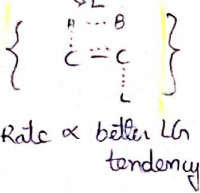 H ---- B
C = C
L
Rate ∝ better LG
tendency